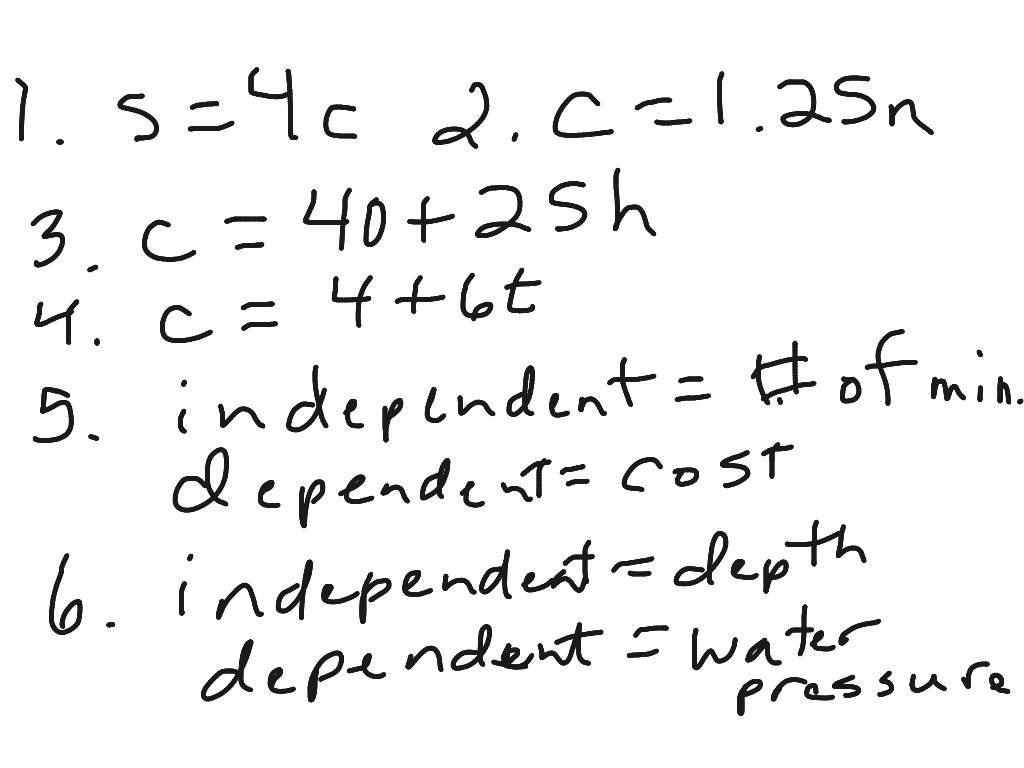 1. s=4c 2. c=1.25n
3. c=40+25h
4. c=4+6t
5. independent=# of min.
dependent=cost
6. independent=depth
dependent=water
pressure